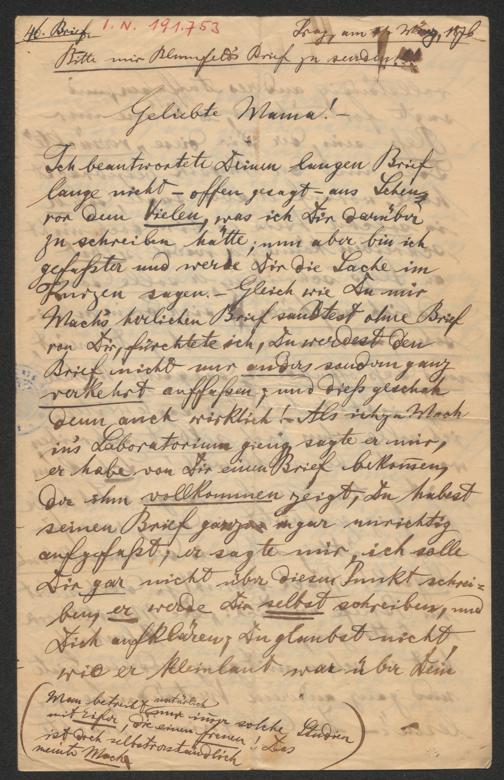 46. Brief.
I. N. 191.753
Prag, am 11. März, 1876
Bitte mir Blumfeld's Brief zu senden!
Geliebte Mama! –
Ich beantwortete Deinen langen Brief
lange nicht – offen gesagt – aus Scheu
vor dem Vielen, was ich Dir darüber
zu schreiben hätte; nun aber bin ich
gefaßter und werde Dir die Sache im
Kurzen sagen. – Gleich wie Du mir
Mach's herlichen Brief sandtest ohne Brief
von Dir, fürchtete ich, Du werdest den
Brief nicht nur anders sondern ganz
verkehrt auffaßen; und dieß geschah
denn auch wirklich! – Als ich zu Mach
in's Laboratorium gieng, sagte er mir,
er habe von Dir einen Brief bekom̄en,
der ihm vollkommen zeigt, Du habest
seinen Brief gar unrichtig
aufgefaßt; er sagte mir, ich solle
Dir gar nicht über diesen Punkt schrei=
ben, er werde Dir selbst schreiben, und
Dich aufklären; Du glaubst nicht
wie er kleinlaut war über Dein
(Man betreibt natürlich
mit Eifer, nur solche Studien
die einen freuen; das
ist doch selbstverständlich
meinte Mach)